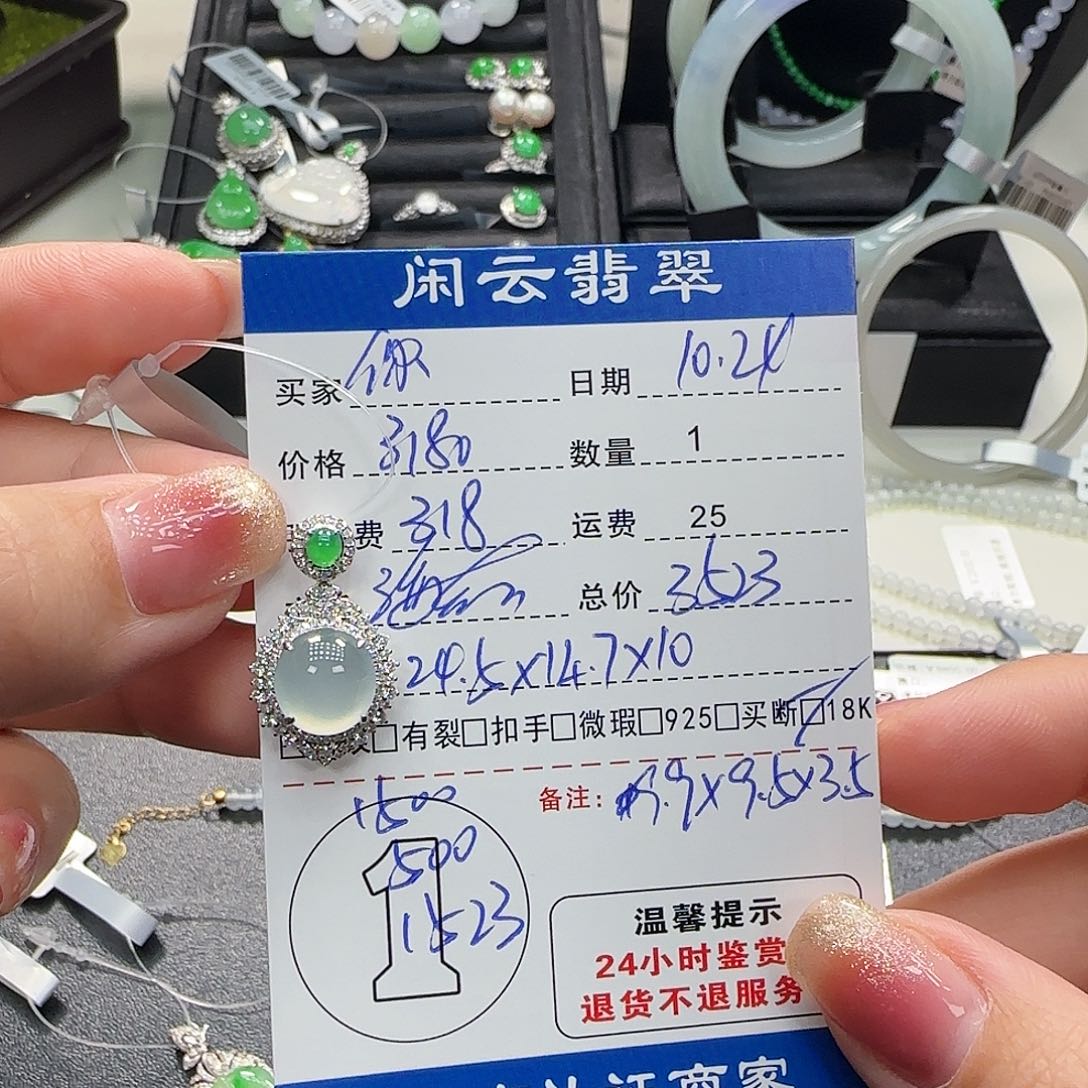 闲云翡翠
买家 日期 10.24
价格 3180 数量 1
费 318 运费 25
总价 3523
24.5×14.7×10
□有裂□扣手□微瑕□925□买断☑18K
备注: 9.9×9.5×3.5
1500
500
1523
温馨提示
24小时鉴赏
退货不退服务